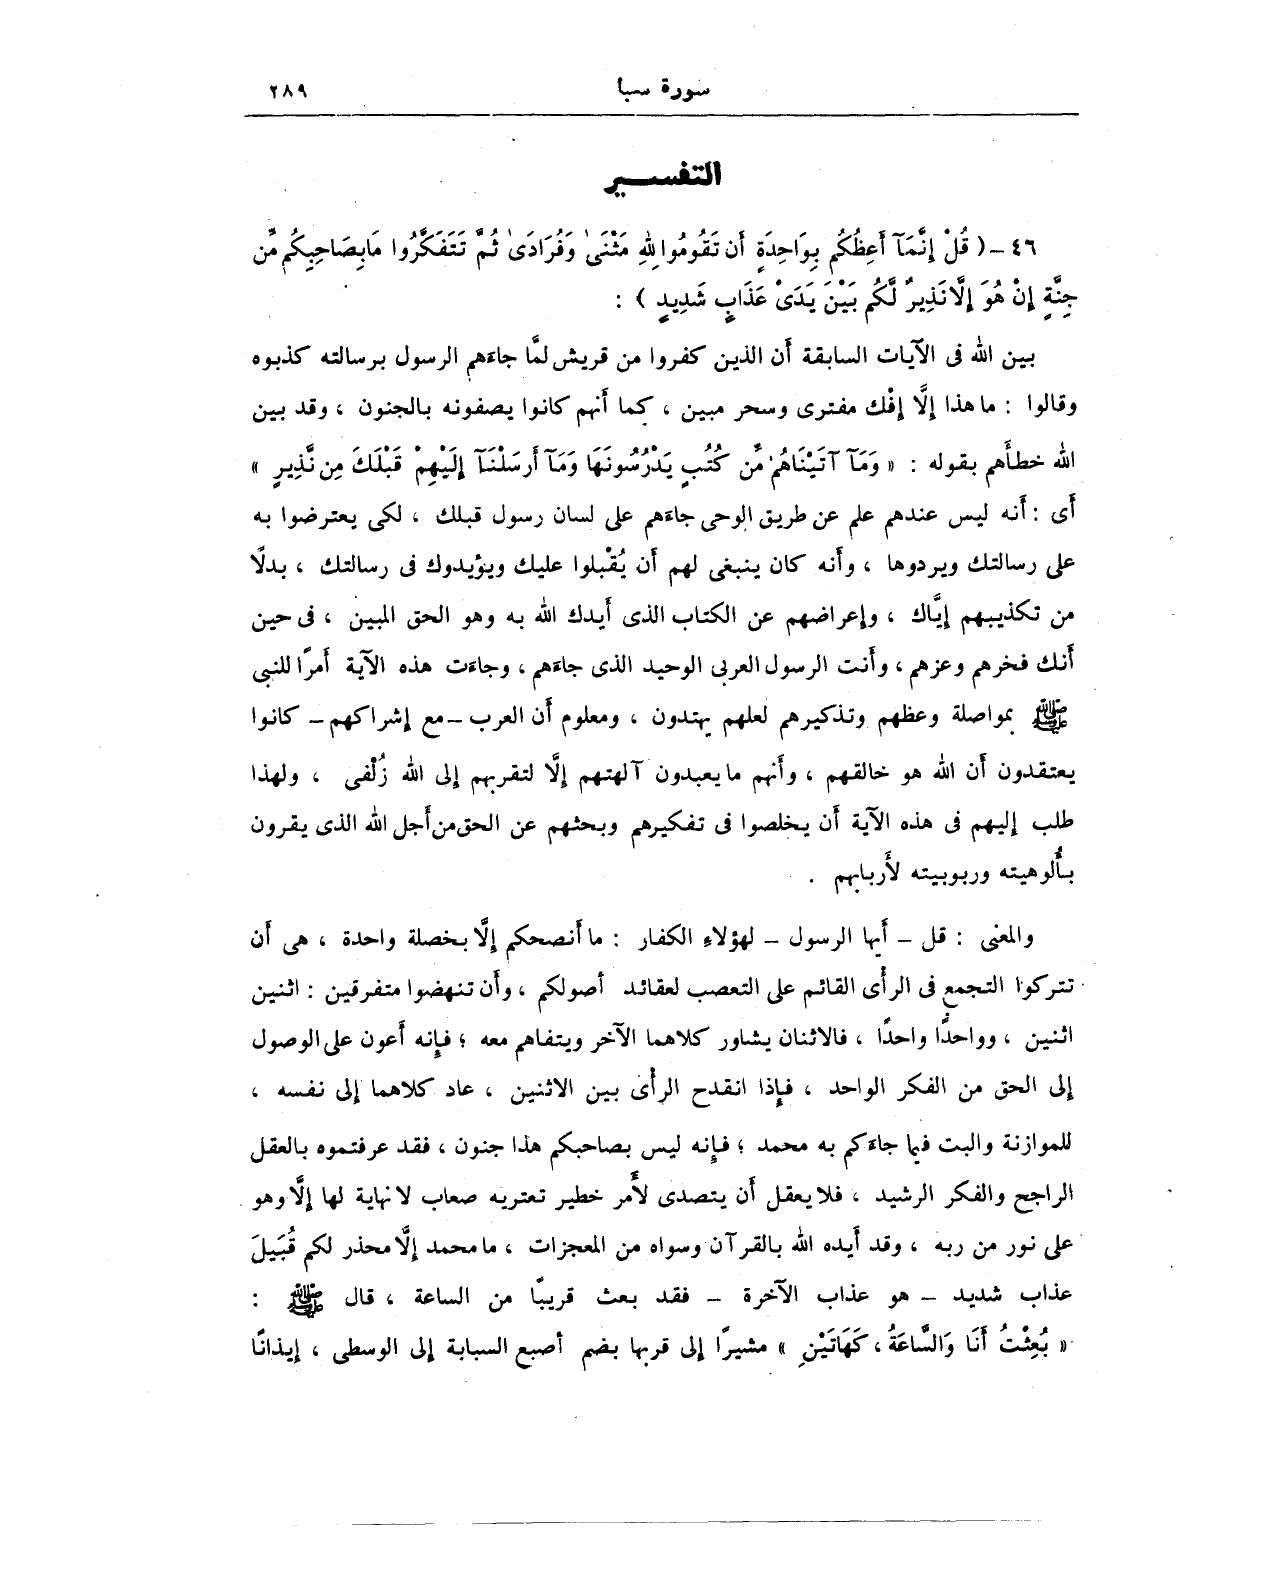 سورة سبا ٢٨٩
التفسير
٤٦ – ( قُلْ إِنَّمَآ أَعِظُكُم بِوَاحِدَةٍ أَن تَقُومُوا لِلهِ مَثْنَىٰ وَفُرَادَىٰ ثُمَّ تَتَفَكَّرُوا مَا بِصَاحِبِكُم مِّن
جِنَّةٍ إِنْ هُوَ إِلَّا نَذِيرٌ لَّكُم بَيْنَ يَدَىْ عَذَابٍ شَدِيدٍ ) :
بين الله فى الآيات السابقة أن الذين كفروا من قريش لمَّا جاءَهم الرسول برسالته كذبوه
وقالوا : ما هذا إلَّا إفْك مفترى وسحر مبين ، كما أنهم كانوا يصفونه بالجنون ، وقد بين
الله خطأَهم بقوله : « وَمَآ آتَيْنَاهُم مِّن كُتُبٍ يَدْرُسُونَهَا وَمَآ أَرسَلْنَآ إِلَيْهِمْ قَبْلَكَ مِن نَّذِيرٍ »
أَى : أَنه ليس عندهم علم عن طريق الوحى جاءَهم على لسان رسول قبلك ، لكى يعترضوا به
على رسالتك ويردوها ، وأَنه كان ينبغى لهم أَن يُقْبلوا عليك ويؤيدوك فى رسالتك ، بدلًا
من تكذيبهم إيَّاك ، وإعراضهم عن الكتاب الذى أَيدك الله به وهو الحق المبين ، فى حين
أَنك فخرهم وعزهم ، وأَنت الرسول العربى الوحيد الذى جاءَهم ، وجاءَت هذه الآية أَمرًا للنبى
ﷺ بمواصلة وعظهم وتذكيرهم لعلهم يهتدون ، ومعلوم أَن العرب – مع إشراكهم – كانوا
يعتقدون أَن الله هو خالقهم ، وأَنهم ما يعبدون آلهتهم إلَّا لتقربهم إلى الله زُلْفى ، ولهذا
طلب إليهم فى هذه الآية أَن يخلصوا فى تفكيرهم وبحثهم عن الحق من أَجل الله الذى يقرون
بأُلوهيته وربوبيته لأَربابهم .
والمعنى : قل – أَيها الرسول – لهؤلاءِ الكفار : ما أَنصحكم إلَّا بخصلة واحدة ، هى أَن
تتركوا التجمع فى الرأْى القائم على التعصب لعقائد أصولكم ، وأَن تنهضوا متفرقين : اثنين
اثنين ، وواحدًا واحدًا ، فالاثنان يشاور كلاهما الآخر ويتفاهم معه ؛ فإنه أَعون على الوصول
إلى الحق من الفكر الواحد ، فإذا انقدح الرأْى بين الاثنين ، عاد كلاهما إلى نفسه ،
للموازنة والبت فيما جاءَكم به محمد ؛ فإنه ليس بصاحبكم هذا جنون ، فقد عرفتموه بالعقل
الراجح والفكر الرشيد ، فلا يعقل أَن يتصدى لأَمر خطير تعتريه صعاب لا نهاية لها إلَّا وهو
على نور من ربه ، وقد أَيده الله بالقرآن وسواه من المعجزات ، ما محمد إلَّا محذر لكم قُبَيلَ
عذاب شديد – هو عذاب الآخرة – فقد بعث قريبًا من الساعة ، قال ﷺ :
« بُعِثْتُ أَنَا وَالسَّاعَةُ ، كَهَاتَيْنِ » مشيرًا إلى قربها بضم أصبع السبابة إلى الوسطى ، إيذانًا